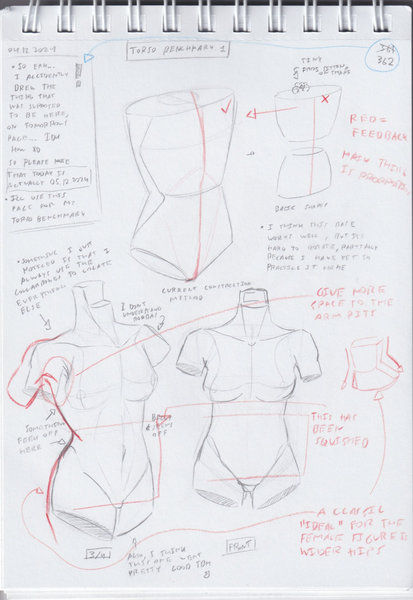 04.12.2024
TORSO BENCHMARK 1
D63
362
• SO EAH...
I ACCIDENTLY
DREW THE
THING THAT
WAS SUPPOSED
TO BE HERE,
ON TOMORROWS
PAGE... IDK
HOW XD
SO PLEASE NOTE
THAT TODAY IS
ACTUALLY 05.12.2024
• ILL USE THIS
PAGE FOR MY
TORSO BENCHMARK
TINY
RED =
FEEDBACK
MAIN THING
IS PROPORTIONS
BASIC SHAPES
• I THINK THIS BASE
WORKS WELL, BUT ITS
HARD TO ROTATE, PARTIALLY
BECAUSE I HAVE YET TO
PRACTICE IT MORE
CURRENT CONSTRUCTION
METHOD
• SOMETHING I GOT
NOTICED IS THAT I
ALWAYS USE THE
COLLARBONE TO LOCATE
EVERYTHING
ELSE
I DONT
UNDERSTAND
GIVE MORE
SPACE TO THE
ARM PITS
SOMETHING
FEELS OFF
HERE
OFF
THIS HAS
BEEN
SQUISHED
3/4
FRONT
ALSO, I THINK
THIS ONE WENT
PRETTY GOOD IDK
A CLASSIC
"IDEAL" FOR THE
FEMALE FIGURE IS
WIDER HIPS